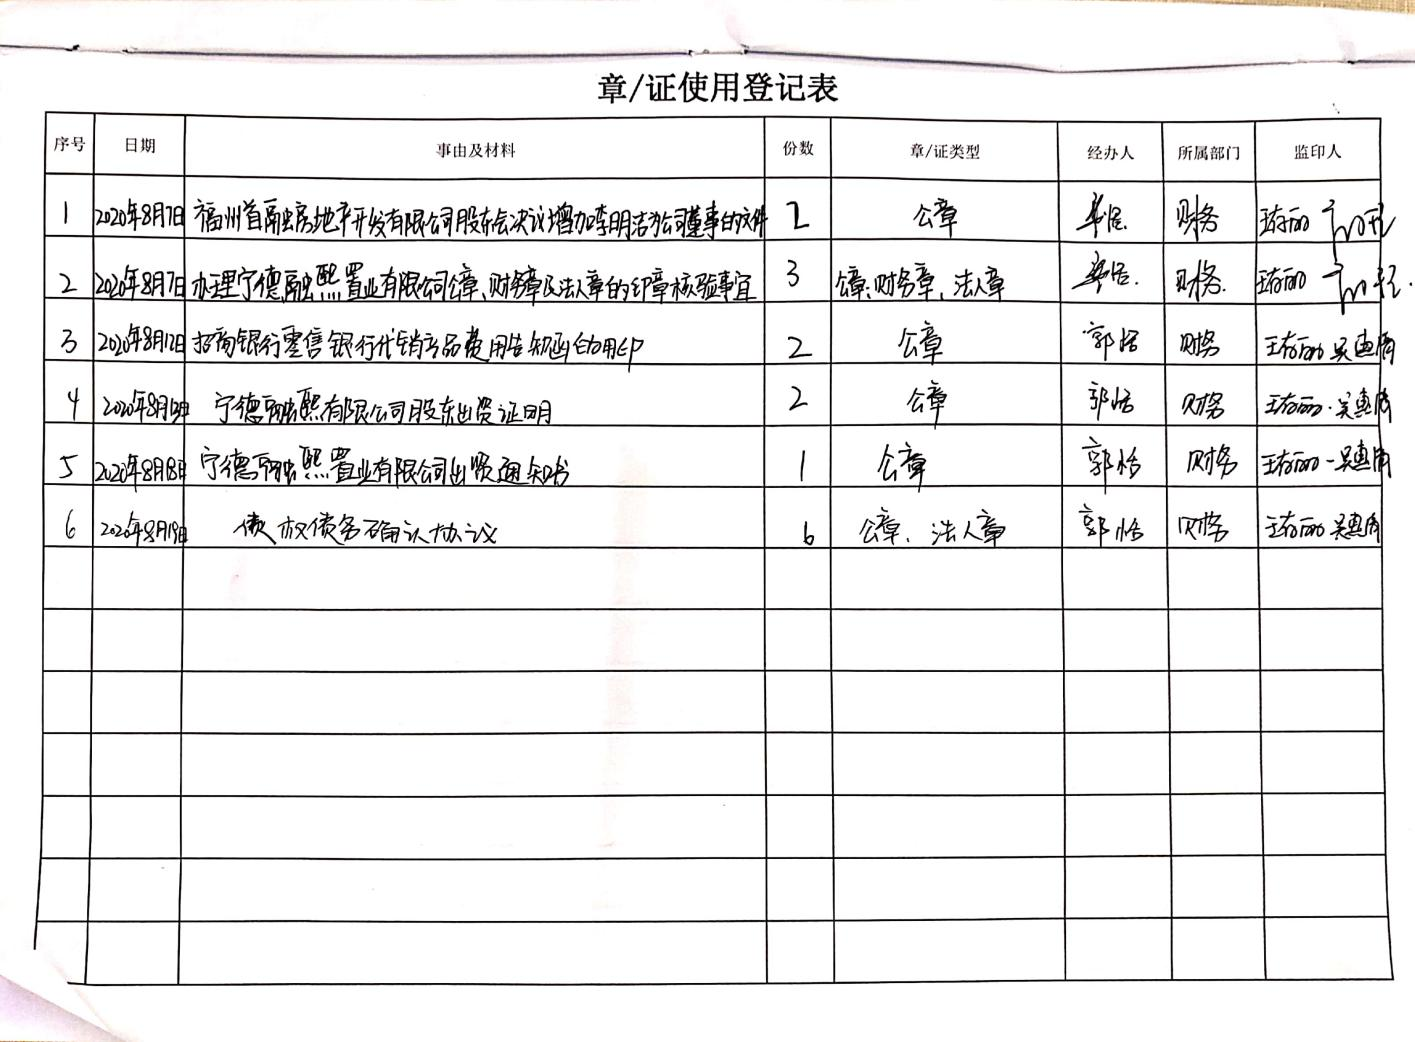 章/证使用登记表
序号 日期 事由及材料 份数 章/证类型 经办人 所属部门 监印人
1 2020年8月7日 福州首融房地产开发有限公司股东会决议增加李明洁为公司董事的文件 2 公章 财务 王存丽
2 2020年8月7日 办理宁德融熙置业有限公司公章、财务章及法人章的印章核验事宜 3 公章、财务章、法人章 财务. 王存丽
3 2020年8月12日 招商银行零售银行代销产品费用告知函的用印 2 公章 郭怡 财务 王存丽 吴惠周
4 2020年8月13日 宁德融熙有限公司股东出资证明 2 公章 郭怡 财务 王存丽. 吴惠周
5 2020年8月18日 宁德融熙置业有限公司出资通知书 1 公章 郭怡 财务 王存丽 吴惠周
6 2020年8月19日 债权债务确认协议 6 公章、法人章 郭怡 财务 王存丽 吴惠周